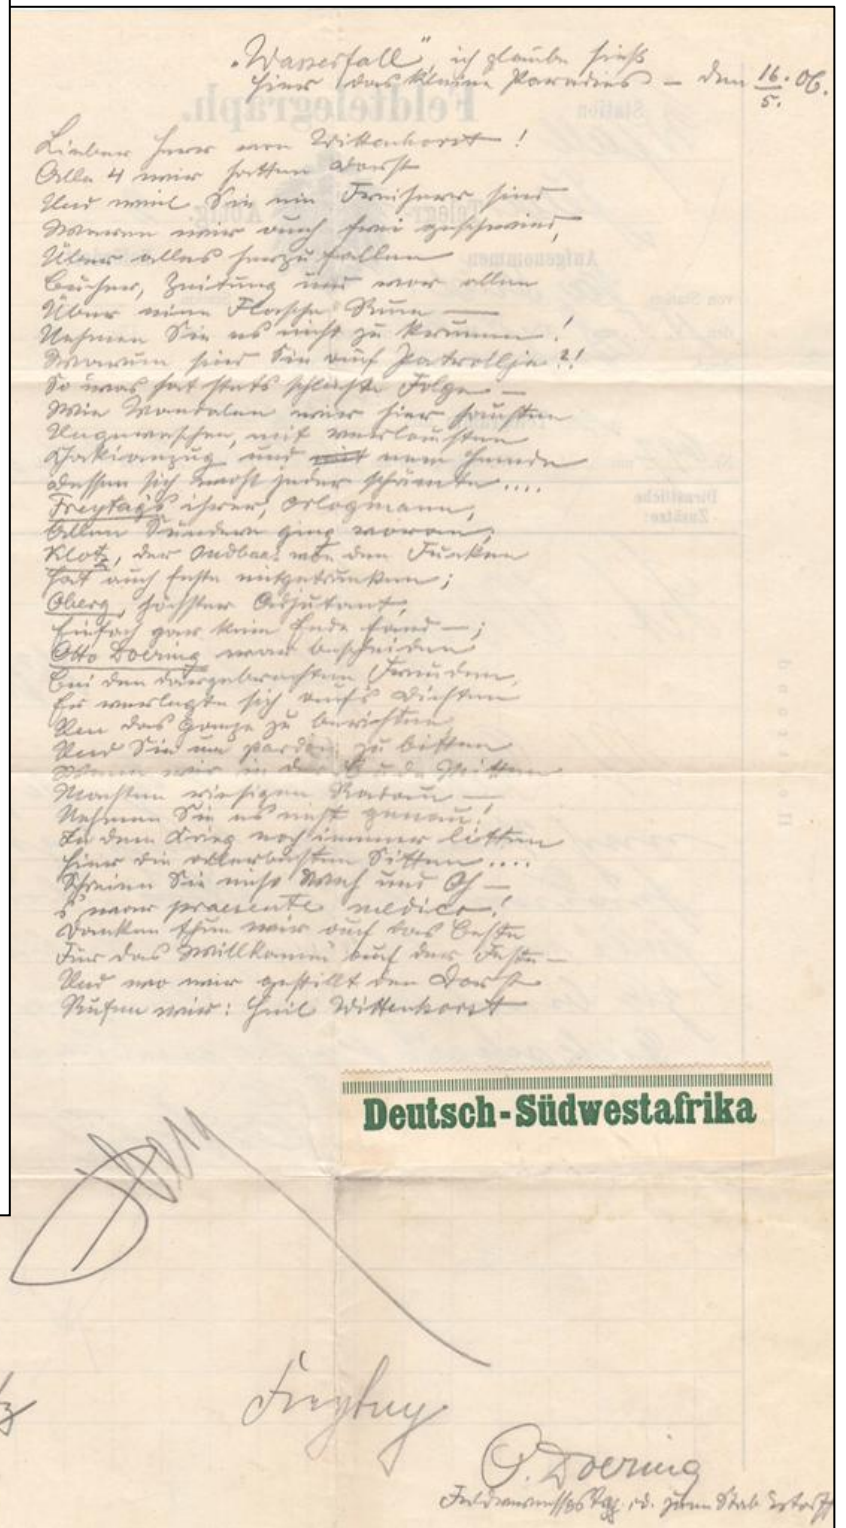 „Wasserfall", ich glaube hieß
hier das kleine Paradies – den 16./5. 06.
Lieber Herr von Wittenhorst!
Alle 4 wir hatten Dorst
Und weil Sie ein Freiherr sind
Waren wir auch frei geschwind,
Über alles herzufallen
Bücher, Zeitung und vor allen
Über eine Flasche Rum —
Nehmen Sie es nicht zu krumm!
Warum sind Sie auf Patrollje?!
So was hat stets schlechte Folge –
Wie Wandalen wir hier hausten
Ungewaschen, mit verlausten
Khakianzug und nem Hemde
Dessen sich wohl jeder schämte....
Freytag's ihrer, Orlogmann,
Allen Sündern ging voran;
Klotz, der von den Funken
Hat auch feste mitgetrunken;
Oberg, höchster Adjutant,
Einfach gar kein Ende fand –;
Otto Doering war bescheiden
Bei den dargebrachten Freuden,
Er verlegte sich auf's Dichten
Um das Ganze zu berichten
Und Sie um pardon zu bitten
Wenn wir in der Bude Mitten
Machten riesigen Radau —
Nehmen Sie es nicht genau!
In dem Krieg noch immer litten
Hier die allerbesten Sitten....
Schreien Sie nicht Weh und Ach –
s' war praesente medico!
Danken thun wir auf das Beste
Für das Willkomm' auf der Feste –
Und wo wir gestillt den Dorst
Rufen wir: Heil Wittenhorst
Deutsch-Südwestafrika
Oberg
Freytag
O. Doering
zum Stab Estorff
Feldtelegraph.
Station
Aufgenommen
Dienstliche
Zusätze: